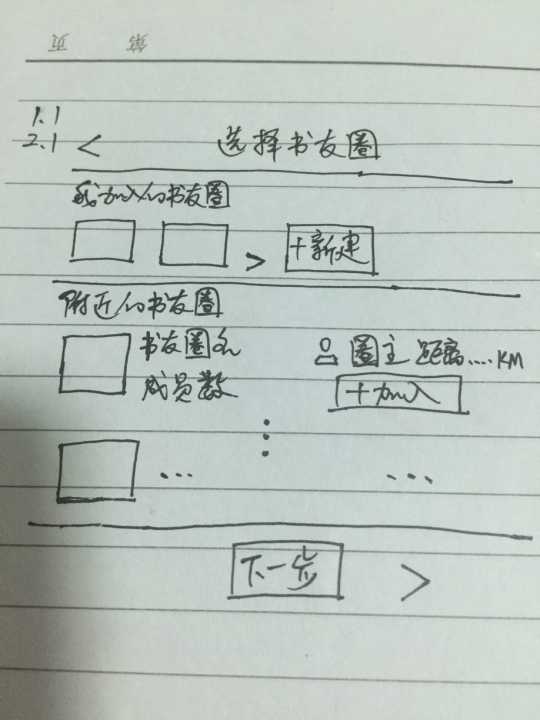 第 页
1.1
2.1 < 选择书友圈
我加入的书友圈
> +新建
附近的书友圈
书友圈名 圈主 距离....KM
成员数 +加入
... ...
下一步 >